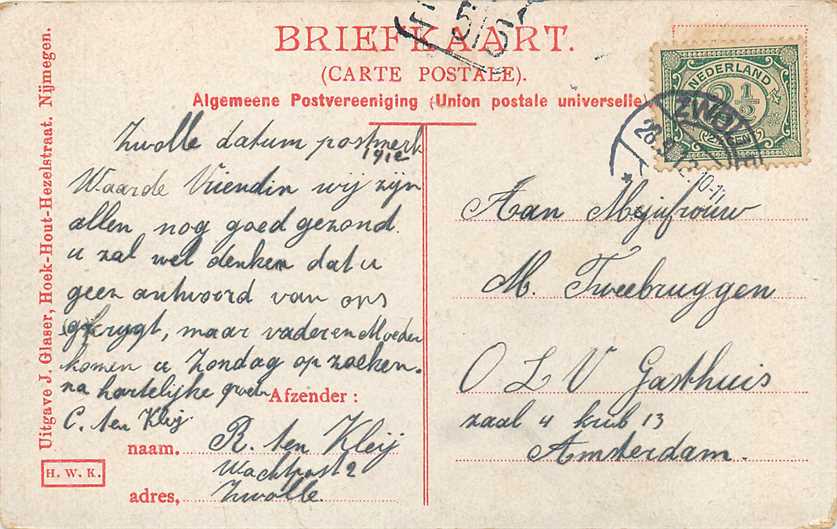 BRIEFKAART.
(CARTE POSTALE).
Algemeene Postvereeniging (Union postale universelle)
NEDERLAND
2½
ZWOLLE
Zwolle datum postmerk
1912
Waarde Vriendin wij zijn
allen nog goed gezond.
u zal wel denken dat u
geen antwoord van ons
gekrygt, maar vader en Moeder
komen u Zondag op zoeken.
na hartelijke groeten
C. ten Kleij
Afzender:
naam. R. ten Kleij
Wachtpost 2
adres, Zwolle
Aan Mejufrouw
M. Tweebruggen
O L V Gasthuis
zaal 4 krib 13
Amsterdam.
Uitgave J. Glaser, Hoek-Hout-Hezelstraat. Nijmegen.
H. W. K.